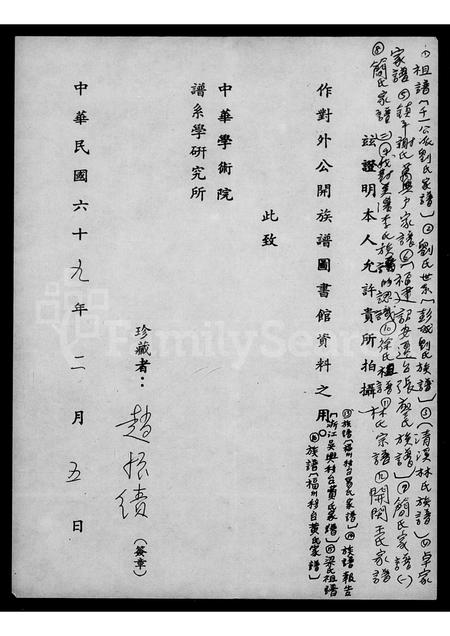 ①祖譜〔千一公派劉氏家譜〕②劉氏世系〔彭城劉氏族譜〕③〔清溪林氏族譜〕④卓家
家譜⑤鎮平謝氏 戶家譜⑥〔福建詔安遷台張廖氏族譜〕⑦簡氏家譜(一)
⑧簡氏家譜(二)⑨ 李氏族譜的認識⑩徐氏祖譜⑪林氏宗譜⑫開閩王氏家譜
茲證明本人允許貴所拍攝
⑬族譜〔福州移台 氏家譜〕⑭族譜報告
〔浙江吳興移台費氏家譜〕⑮梁氏祖譜
⑯族譜〔福州移台黃氏家譜〕
作對外公開族譜圖書館資料之用。
此致
中華學術院
譜系學研究所
珍藏者：趙振績(簽章)
中華民國六十九年二月五日
FamilySearch